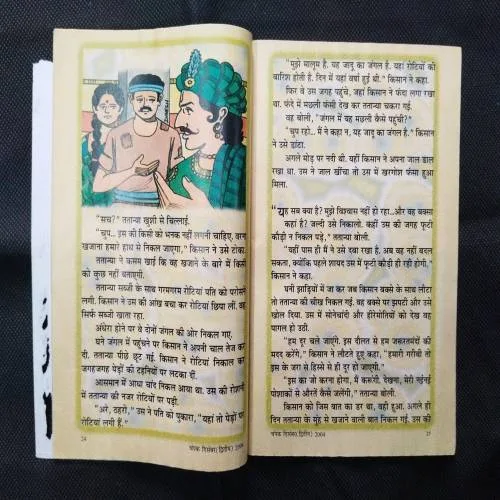 "सच?" ततान्या खुशी से चिल्लाई.
"चुप...इस की किसी को भनक नहीं लगनी चाहिए, वरना
खजाना हमारे हाथ से निकल जाएगा," किसान ने उसे टोका.
ततान्या ने कसम खाई कि वह खजाने के बारे में किसी
को कुछ नहीं बताएगी.
ततान्या सब्जी के साथ गरमगरम रोटियां पति को परोसने
लगी. किसान ने उस की आंख बचा कर रोटियां छिपा लीं. वह
सिर्फ सब्जी खाता रहा.
अंधेरा होने पर वे दोनों जंगल की ओर निकल गए.
घने जंगल में पहुंचने पर किसान ने अपनी चाल तेज कर
दी. ततान्या पीछे छूट गई. किसान ने रोटियां निकाल कर
जगहजगह पेड़ों की टहनियों पर लटका दीं.
आसमान में आधा चांद निकल आया था. उस की रोशनी
में ततान्या की नजर रोटियों पर पड़ी.
"अरे, ठहरो," उस ने पति को पुकारा, "यहां तो पेड़ों पर
रोटियां लगी हैं."
24
चंपक दिसंबर (द्वितीय) 2004
"मुझे मालूम है. यह जादू का जंगल है. यहां रोटियों की
बारिश होती है. दिन में यहां वर्षा हुई थी." किसान ने कहा.
फिर वे उस जगह पहुंचे, जहां किसान ने फंदा लगा रखा
था. फंदे में मछली फंसी देख कर ततान्या चकरा गई.
वह बोली, "जंगल में यह मछली कैसे पहुंची?"
"चुप रहो... मैं ने कहा न, यह जादू का जंगल है." किसान
ने उसे डांटा.
अगले मोड़ पर नदी थी. यहीं किसान ने अपना जाल डाल
रखा था. उस ने जाल खींचा तो उस में खरगोश फंसा हुआ
मिला.
"यह सब क्या है? मुझे विश्वास नहीं हो रहा...और वह बक्सा
कहां है? जल्दी उसे निकालो. कहीं उस की जगह फूटी
कौड़ी न निकल पड़े," ततान्या बोली.
"यहीं पास ही मैं ने उसे दबा रखा है. अब वह नहीं बदल
सकता, क्योंकि पहले शायद उस में फूटी कौड़ी ही रही होगी,"
किसान ने कहा.
घनी झाड़ियों में जा कर जब किसान बक्से के साथ लौटा
तो ततान्या की चीख निकल गई. वह बक्से पर झपटी और उसे
खोल दिया. उस में सोनेचांदी और हीरेमोतियों को देख वह
पागल हो उठी.
"हम दूर चले जाएंगे. इस दौलत से हम जरूरतमंदों की
मदद करेंगे," किसान ने लौटते हुए कहा, "हमारी गरीबी तो
इस के जरा से हिस्से से ही दूर हो जाएगी."
"इस का जो करना होगा, मैं करूंगी. देखना, मेरी नईनई
पोशाकों से औरतें कैसे जलेंगी," ततान्या बोली.
किसान को जिस बात का डर था, वही हुआ. अगले ही
दिन ततान्या के मुंह से खजाने वाली बात निकल गई. उस की
चंपक दिसंबर (द्वितीय) 2004
25